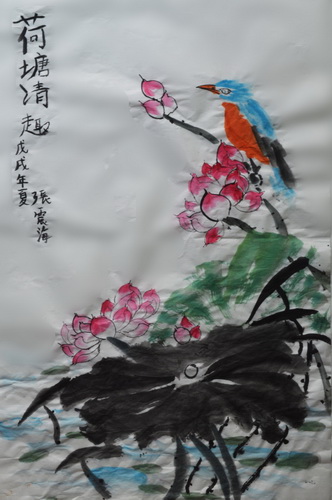 荷塘清趣
戊戌年夏
張震海